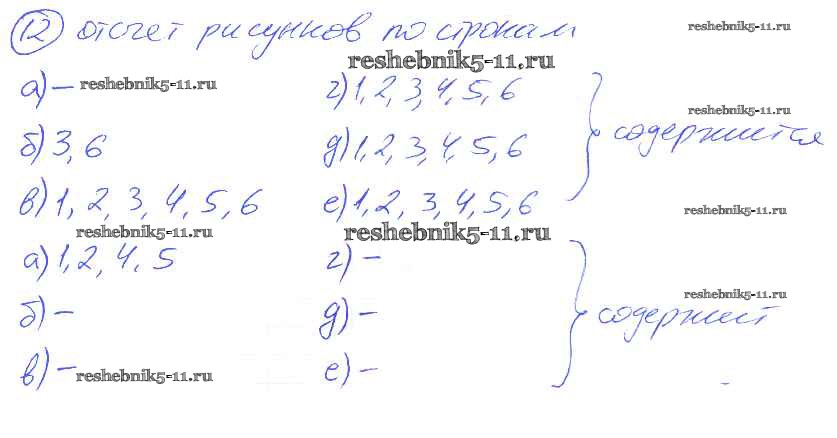 12 отсчет рисунков по строкам
reshebnik5-11.ru
reshebnik5-11.ru
а) – reshebnik5-11.ru г) 1, 2, 3, 4, 5, 6
reshebnik5-11.ru
б) 3, 6 д) 1, 2, 3, 4, 5, 6 содержится
в) 1, 2, 3, 4, 5, 6 е) 1, 2, 3, 4, 5, 6
reshebnik5-11.ru
reshebnik5-11.ru reshebnik5-11.ru
а) 1, 2, 4, 5 г) –
reshebnik5-11.ru
б) – д) – содержит
в) – reshebnik5-11.ru е) –